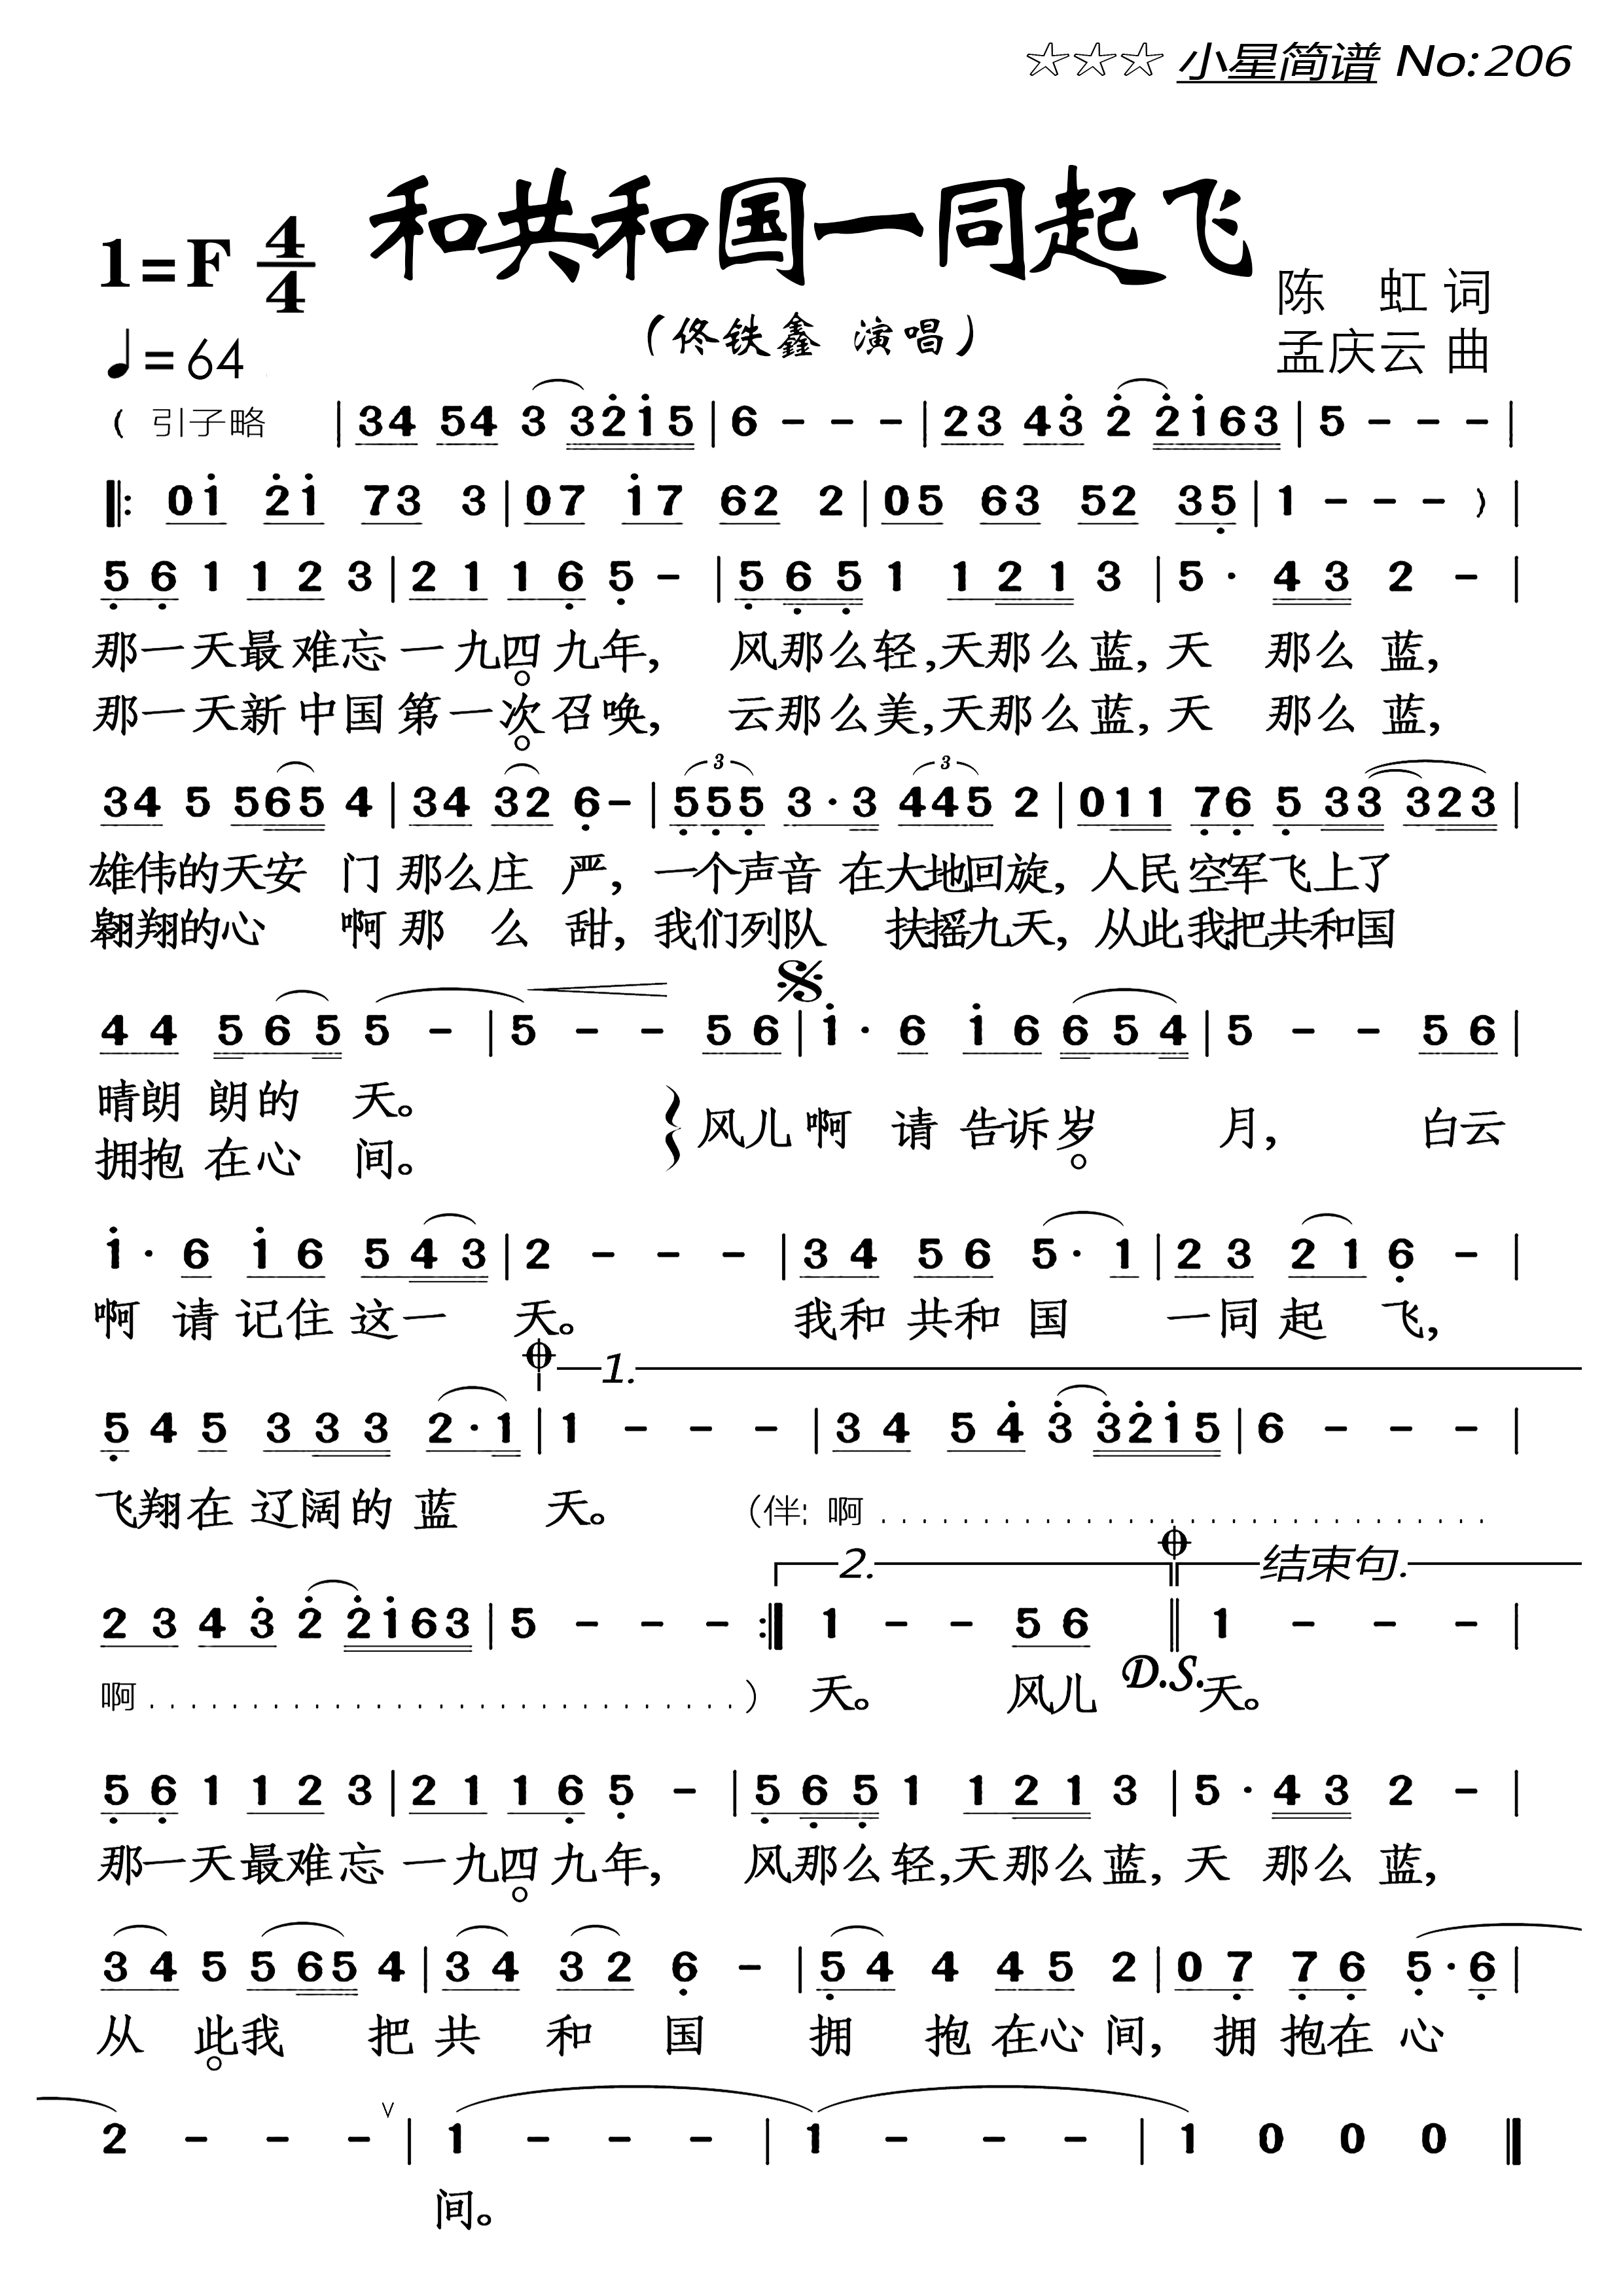 ☆☆☆ 小星简谱 No:206
和共和国一同起飞
1=F 4/4
陈 虹 词
(佟铁鑫 演唱)
孟庆云 曲
♩=64
( 引子略 | 34 54 3 32̇i̇5 | 6 - - - | 23 43̇ 2̇ 2̇i̇63 | 5 - - - |
‖: 0i̇ 2̇i̇ 73 3 | 07 i̇7 62 2 | 05 63 52 35̣ | 1 - - - ) |
5̣ 6̣ 1 1 2 3 | 2 1 1 6̣ 5̣ - | 5̣ 6̣ 5̣ 1 1 2 1 3 | 5 · 4 3 2 - |
那一天最难忘一九四九年, 风那么轻,天那么蓝,天 那么 蓝,
那一天新中国第一次召唤, 云那么美,天那么蓝,天 那么 蓝,
34 5 565 4 | 34 32 6̣ - | 3 5̣5̣5̣ 3·3 3 445 2 | 011 7̣6̣ 5̣ 33 323 |
雄伟的天安 门 那么庄 严, 一个声音 在大地回旋, 人民空军飞上了
翱翔的心 啊 那 么 甜, 我们列队 扶摇九天, 从此我把共和国
4 4 5 6 5 5 - | 5 - - 5 6 | i̇ · 6 i̇ 6 6 5 4 | 5 - - 5 6 |
晴朗 朗的 天。
风儿 啊 请 告诉岁 月, 白云
拥抱 在心 间。
i̇ · 6 i̇ 6 5 4 3 | 2 - - - | 3 4 5 6 5 · 1 | 2 3 2 1 6̣ - |
啊 请 记住 这一 天。 我和 共和 国 一同 起 飞,
1.
5̣ 4 5 3 3 3 2 · 1 | 1 - - - | 3 4 5 4̇ 3̇ 3̇2̇i̇5 | 6 - - - |
飞翔在 辽阔的 蓝 天。 (伴: 啊 ..............................
2. 结束句.
2 3 4 3̇ 2̇ 2̇i̇63 | 5 - - - :‖ 1 - - 5 6 ‖ 1 - - - |
啊 ............................ ) 天。 风儿 D.S. 天。
5̣ 6̣ 1 1 2 3 | 2 1 1 6̣ 5̣ - | 5̣ 6̣ 5̣ 1 1 2 1 3 | 5 · 4 3 2 - |
那一天最难忘 一九四九年, 风那么轻,天那么蓝,天 那么 蓝,
3 4 5 5 65 4 | 3 4 3 2 6̣ - | 5̣ 4 4 4 5 2 | 0 7̣ 7̣ 6̣ 5̣ · 6̣ |
从 此我 把 共 和 国 拥 抱 在心 间, 拥 抱在 心
2 - - - ∨ | 1 - - - | 1 - - - | 1 0 0 0 ‖
间。